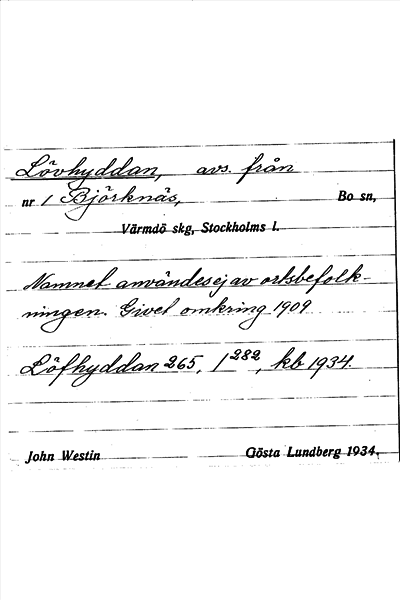 Lövhyddan, avs. från
nr 1 Björknäs, Bo sn,
Värmdö skg, Stockholms l.
Namnet användes ej av ortsbefolk-
ningen. Givet omkring 1909
Löfhyddan 265, 1²⁸², kb 1934.
John Westin Gösta Lundberg 1934.